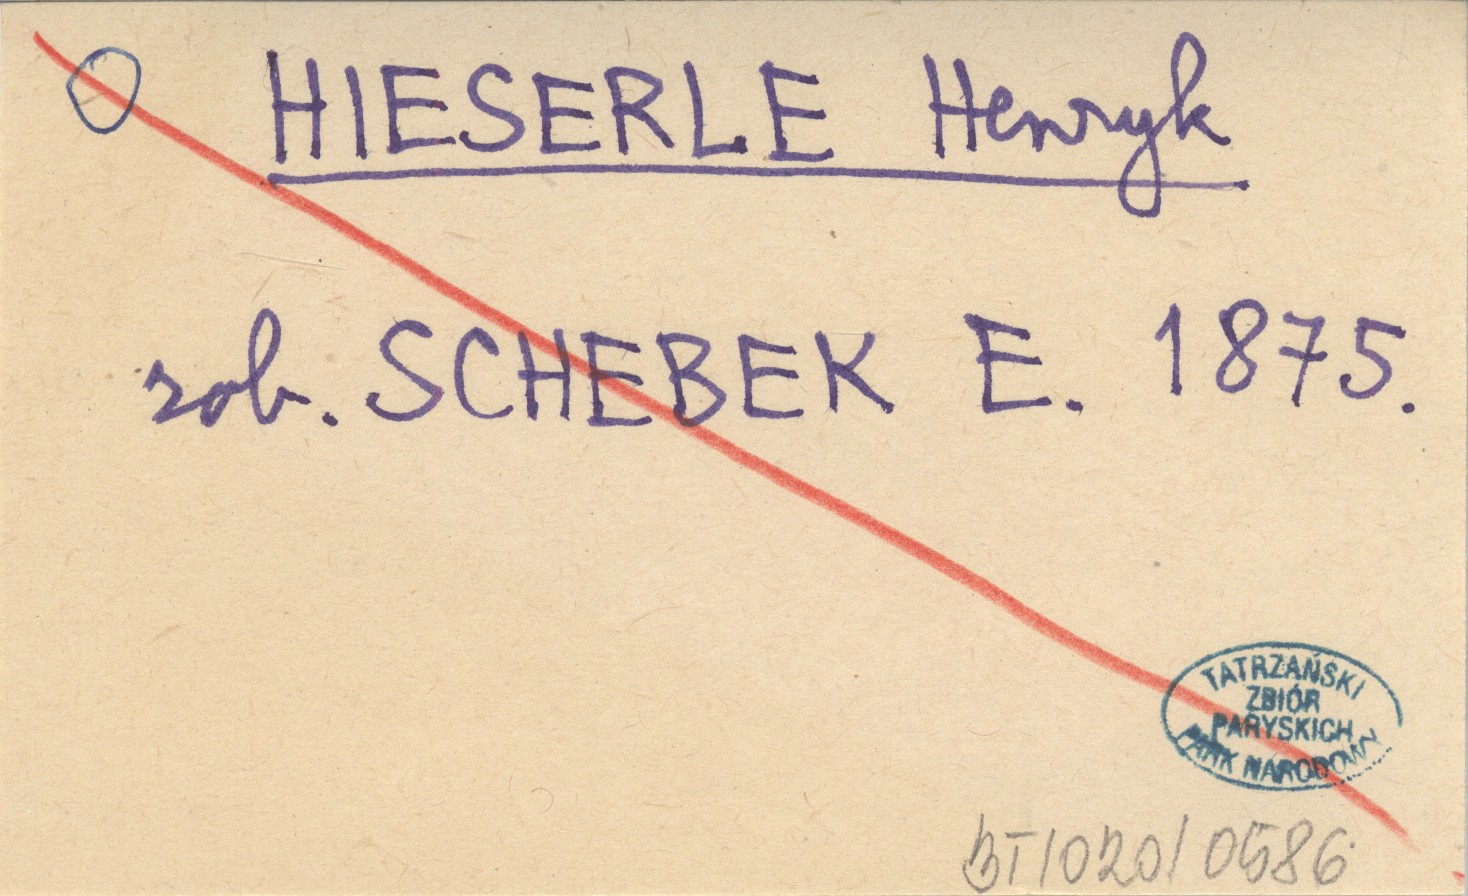 HIESERLE Henryk
zob. SCHEBEK E. 1875.
TATRZAŃSKI
ZBIÓR
PARYSKICH
PARK NARODOWY
BT/020/0586